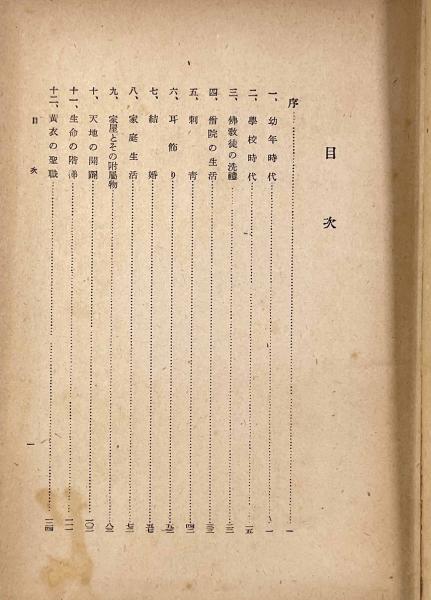 目次
序……一
一、幼年時代……一
二、學校時代……一五
三、佛敎徒の洗禮……二三
四、僧院の生活……三三
五、刺靑……四二
六、耳飾り……五三
七、結婚……五七
八、家庭生活……七三
九、家屋とその附屬物……八三
十、天地の開闢……一〇一
十一、生命の階梯……一一一
十二、黃衣の聖職……一二四
目次
一